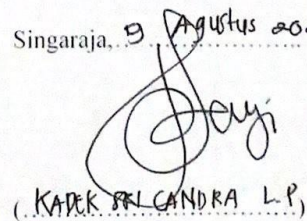 Singaraja, 9 Agustus 20
(KADEK SRI CANDRA L.P)